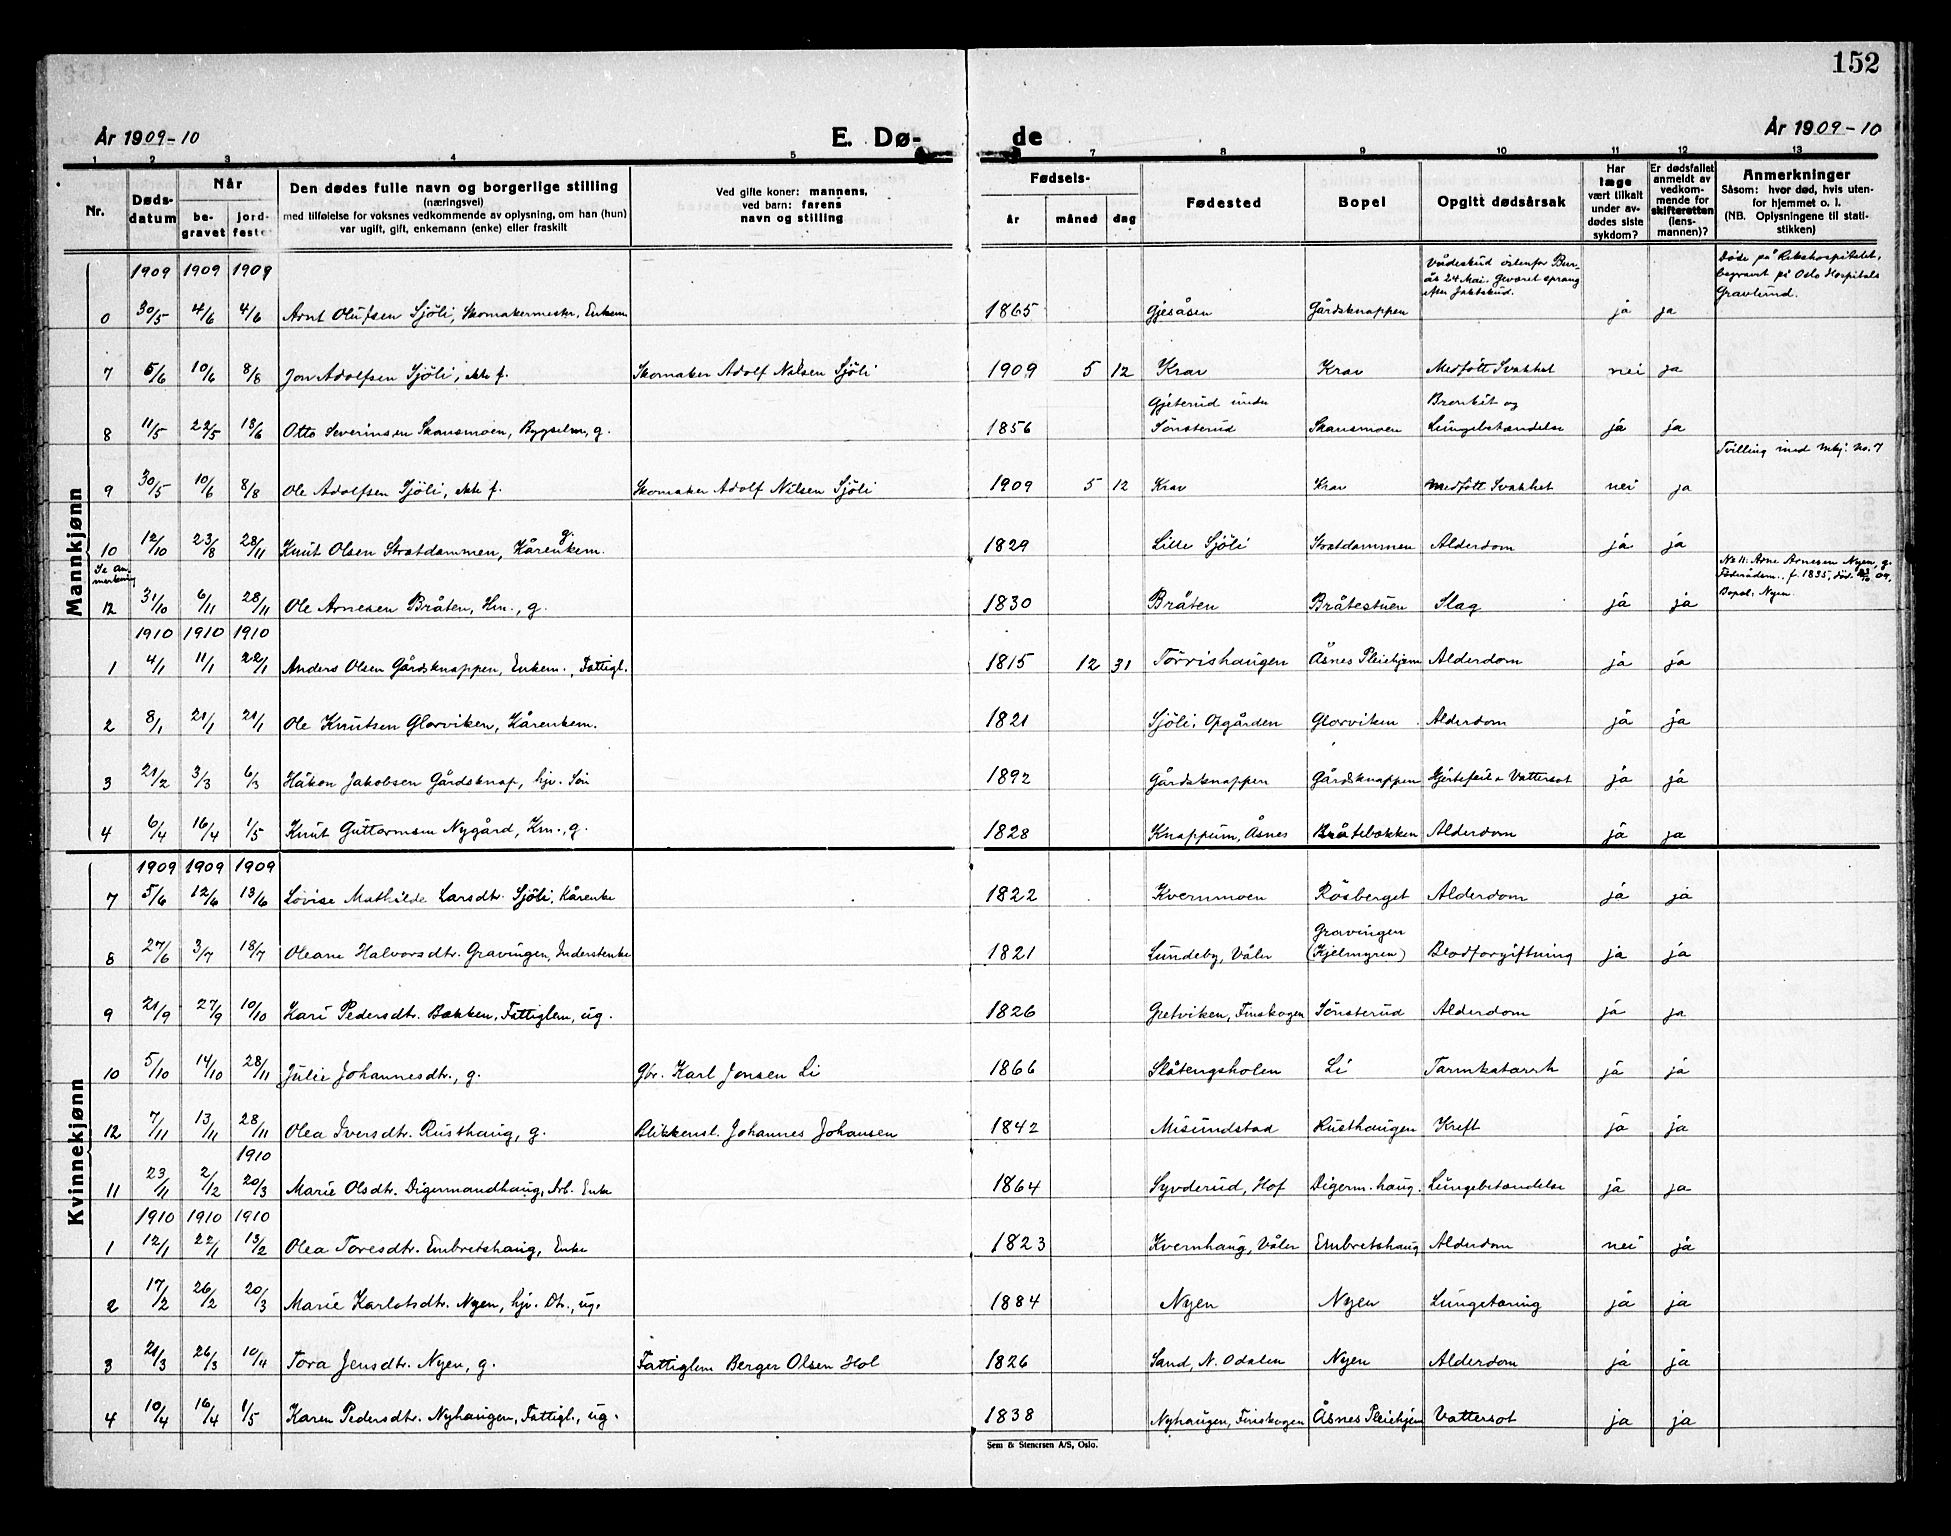 152
År 1909-10
E. Dø-
de
År 1909-10
1 2 3 4 5 7 8 9 10 11 12 13
Nr.
Døds-
datum
Når
be-
gravet
jord-
festet
Den dødes fulle navn og borgerlige stilling
(næringsvei)
med tilføielse for voksnes vedkommende av oplysning, om han (hun)
var ugift, gift, enkemann (enke) eller fraskilt
Ved gifte koner: mannens,
ved barn: farens
navn og stilling
Fødsels-
år måned dag
Fødested
Bopel
Opgitt dødsårsak
Har
læge
vært tilkalt
under av-
dødes siste
sykdom?
Er dødsfallet
anmeldt av
vedkom-
mende for
skifteretten
(lens-
mannen)?
Anmerkninger
Såsom: hvor død, hvis uten-
for hjemmet o. l.
(NB. Oplysningene til stati-
stikken)
Mannkjønn
1909 1909 1909
Vådeskud östenfor Bur-
ås 24 Mai. Geværet sprang
efter Jaktskud.
Döde på Rikshospitalet,
begravet på Oslo Hospitals
Gravlund.
0 30/5 4/6 4/6 Arnt Olufsen Sjöli, Skomakermester, Enkem 1865 Gjesåsen Gårdsknappen ja ja
7 5/6 10/6 8/8 Jon Adolfsen Sjöli, ekte f. Skomaker Adolf Nilsen Sjöli 1909 5 12 Krav Krav Medfött Svakhet nei ja
Gjeterud under Bronkit og
8 11/5 22/5 13/6 Otto Severinsen Skansmoen, Bygselm, g. 1856 Sönsterud Skansmoen Lungebetændelse ja ja
Tvilling med mkj. no. 7
9 30/5 10/6 8/8 Ole Adolfsen Sjöli, ekte f. Skomaker Adolf Nilsen Sjöli 1909 5 12 Krav Krav Medfött Svakhet nei ja
10 12/10 23/8 28/11 Knut Olsen Stratdammen, Kårenkem. 1829 Lille Sjöli Stratdammen Alderdom ja ja
Se An-
merkning
No 11: Arne Arnesen Nyen, g.
Föderådsm., f. 1835, död 09,
Bopel: Nyen.
12 31/10 6/11 28/11 Ole Arnesen Bråten, Hm., g. 1830 Bråten Bråtestuen Slag ja ja
1910 1910 1910
1 4/1 11/1 22/1 Anders Olsen Gårdsknappen, Enkem., Fattigl. 1815 12 31 Torrishaugen Åsnes Pleiehjem Alderdom ja ja
2 8/1 21/1 21/1 Ole Knutsen Glorviken, Kårenkem. 1821 Sjöli, Opgården Glorviken Alderdom ja ja
3 21/2 3/3 6/3 Håkon Jakobsen Gårdsknap, hjv. Sön 1892 Gårdsknappen Gårdsknappen Hjertefeil & Vattersot ja ja
4 6/4 16/4 1/5 Knut Guttormsen Nygård, Km., g. 1828 Knappum, Åsnes Bråtebakken Alderdom ja ja
Kvinnekjønn
1909 1909 1909
7 5/6 12/6 13/6 Lovise Mathilde Larsdtr. Sjöli, Kårenke 1822 Kvernmoen Rösberget Alderdom ja ja
Gravingen
8 27/6 3/7 18/7 Oleane Halvorsdtr. Gravingen, Inderstenke 1821 Lundeby, Våler (Kjelmyren) Blodforgiftning ja ja
9 21/9 27/9 10/10 Kari Pedersdtr. Bakken, Fattiglem, ug. 1826 Gretviken, Finskogen Sönsterud Alderdom ja ja
10 5/10 14/10 28/11 Julie Johannesdtr., g. Gbr. Karl Jensen Li 1866 Slåtengsholen Li Tarmkatarrh ja ja
12 7/11 13/11 28/11 Olea Iversdtr. Rusthaug, g. Blikkensl. Johannes Johansen 1842 Misundstad Rusthaugen Kreft ja ja
1910
11 23/11 2/12 20/3 Marie Olsdtr. Digermandhaug, Arb. Enke 1864 Syvderud, Hof Digerm.haug. Lungebetændelse ja ja
1910 1910 1910
1 12/1 22/1 13/2 Olea Toresdtr. Embretshaug, Enke 1823 Kvernhaug, Våler Embretshaug Alderdom nei ja
2 17/2 26/2 20/3 Marie Karlotsdtr. Nyen, hjv. Dtr., ug. 1884 Nyen Nyen Lungetæring ja ja
3 21/3 26/3 10/4 Tora Jensdtr. Nyen, g. Fattiglem Berger Olsen Hol 1826 Sand, N. Odalen Nyen Alderdom ja ja
4 10/4 16/4 1/5 Karen Pedersdtr. Nyhaugen, Fattigl., ug. 1838 Nyhaugen, Finskogen Åsnes Pleiehjem Vattersot ja ja
Sem & Stenersen A/S, Oslo.